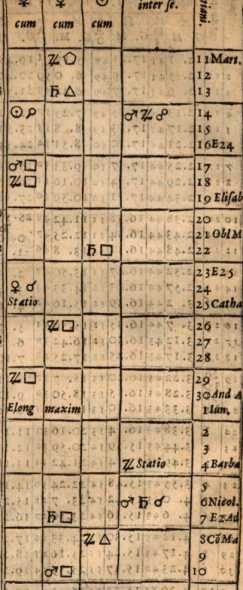 ☿ ♀ ☉ inter se.
cum cum cum
♃ ⬠ 11 Mart.
12
♄ △ 13
☉ ☍ ♂ ♃ ☍ 14
15
16 E24
♂ □ 17
♃ □ 18
19 Elisab
20
21 Obl M
♄ □ 22
23 E25
♀ ☌ 24
Statio 25 Catha
♃ □ 26
27
28
♃ □ 29
30 And A
Elong maxim 1
2
3
♃ Statio 4 Barba
5
♂ ♄ ☌ 6 Nicol.
♄ □ 7 E2Ad
♃ △ 8 Cō Ma
9
♂ □ 10